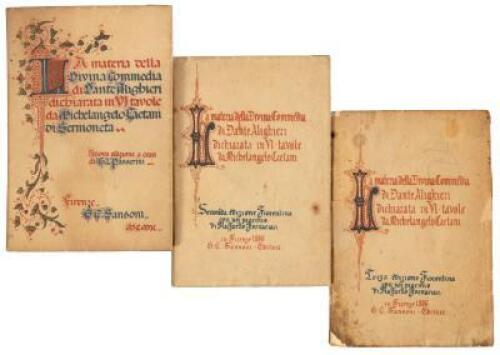 LA materia della
Divina Commedia
di Dante Alighieri
dichiarata in VI tavole
da Michelangelo Caetani
di Sermoneta
Nuova edizione a cura
di G. L. Passerini
Firenze
G. C. Sansoni
La materia della Divina Commedia
di Dante Alighieri
dichiarata in VI tavole
da Michelangelo Caetani
Seconda edizione Fiorentina
con un proemio
di Raffaello Fornaciari
in Firenze 1886
G. C. Sansoni - Editore
La materia della Divina Commedia
di Dante Alighieri
dichiarata in VI tavole
da Michelangelo Caetani
Terza edizione Fiorentina
con un proemio
di Raffaello Fornaciari
in Firenze
G. C. Sansoni - Editore